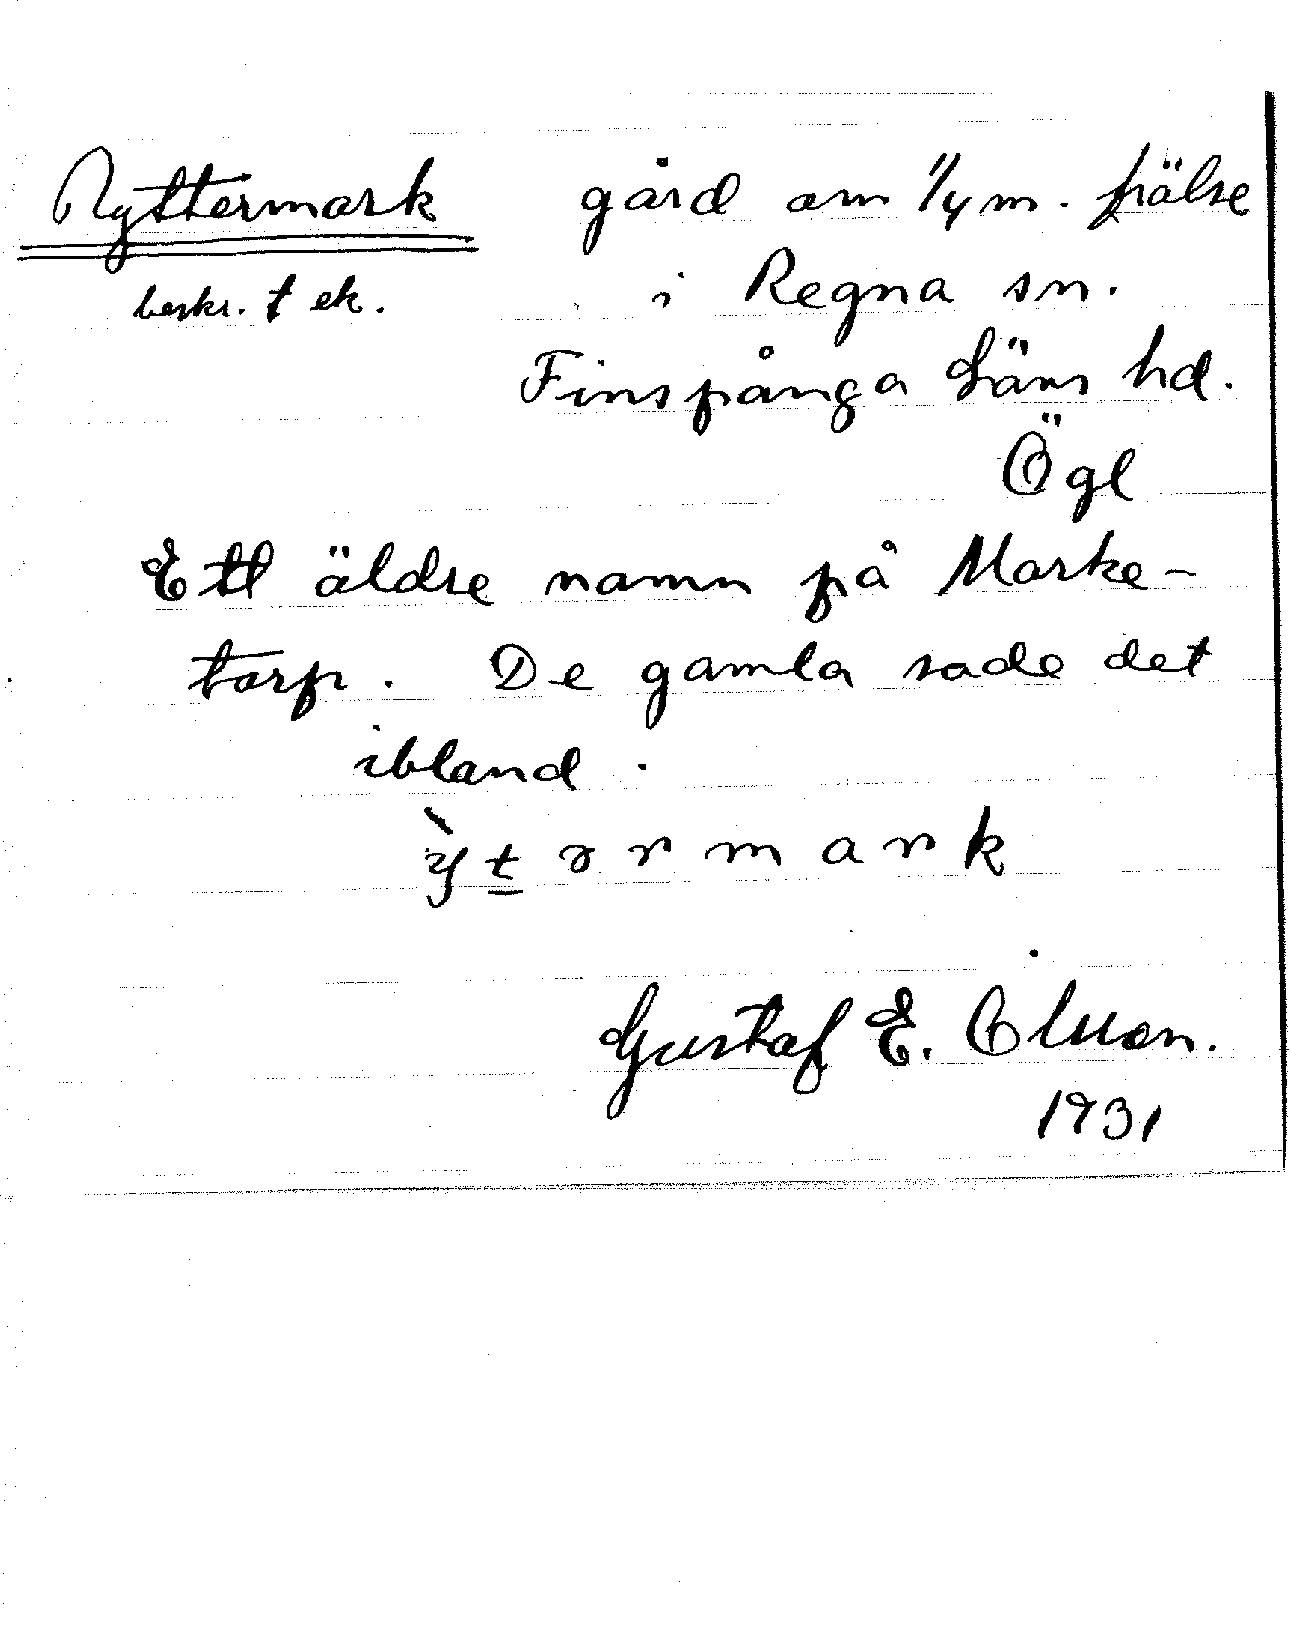 Nyttermark gård om 1/4 m. frälse
beskr. t ek. i Regna sn.
Finspånga Läns hd.
Ögl
Ett äldre namn på Marke-
torp. De gamla sade det
ibland.
ỳt̲ərmark
Gustaf E. Olsson.
1931